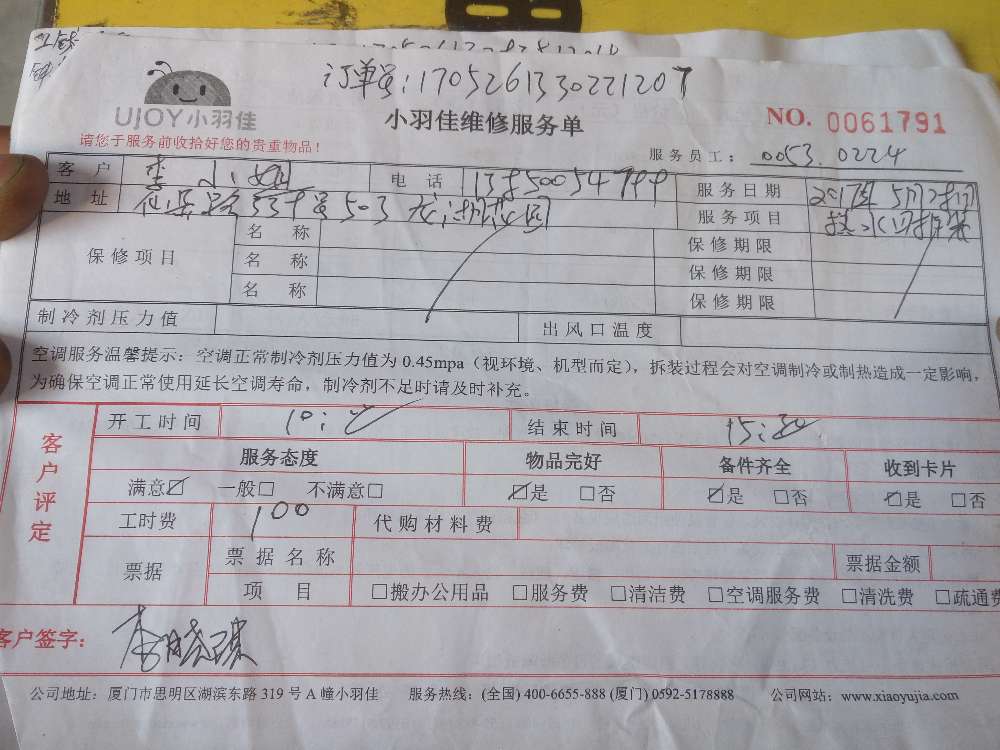 订单号:170526133022120
UJOY小羽佳
小羽佳维修服务单
NO. 0061791
请您于服务前收拾好您的贵重物品！
服务员工: 0053.0224
客户 李小姐 电话 服务日期 2017年5月
地址 503 服务项目 热水
保修项目 名称 保修期限
名称 保修期限
名称 保修期限
制冷剂压力值 出风口温度
空调服务温馨提示：空调正常制冷剂压力值为 0.45mpa（视环境、机型而定），拆装过程会对空调制冷或制热造成一定影响，
为确保空调正常使用延长空调寿命，制冷剂不足时请及时补充。
客户评定
开工时间 结束时间
服务态度 物品完好 备件齐全 收到卡片
满意☑ 一般□ 不满意□ ☑是 □否 ☑是 □否 ☑是 □否
工时费 100 代购材料费
票据 票据名称 票据金额
项目 □搬办公用品 □服务费 □清洁费 □空调服务费 □清洗费 □疏通费
客户签字: 李晓
公司地址: 厦门市思明区湖滨东路 319 号 A 幢小羽佳 服务热线: (全国) 400-6655-888 (厦门) 0592-5178888 公司网站: www.xiaoyujia.com